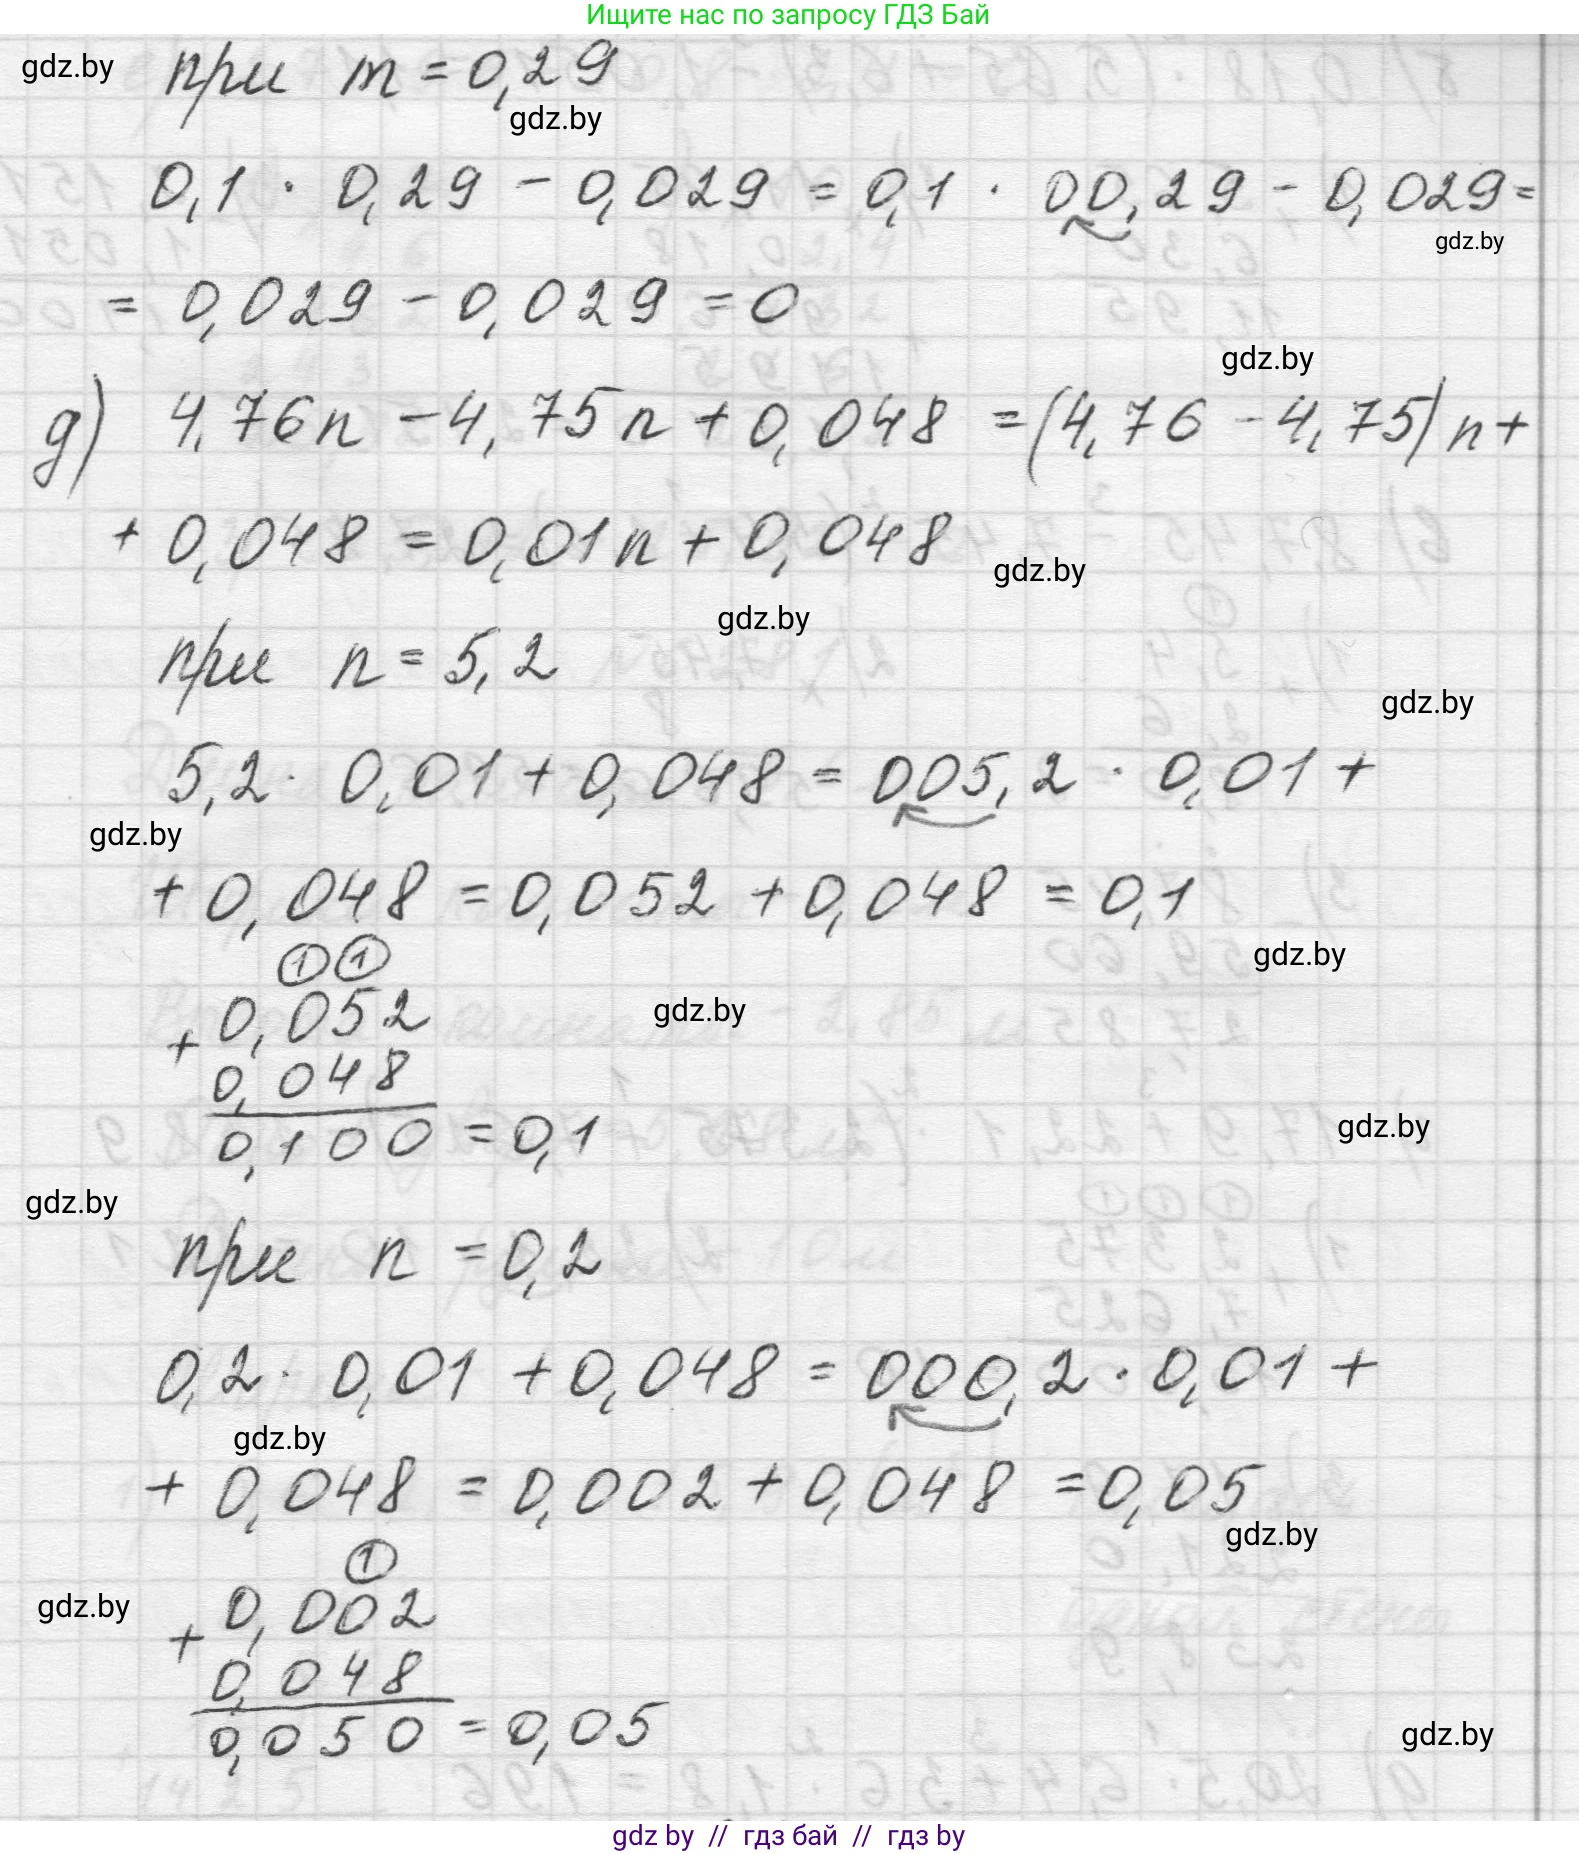 Ищите нас по запросу ГДЗ Бай
gdz.by
при m = 0,29
gdz.by
0,1 · 0,29 - 0,029 = 0,1 · 00,29 - 0,029 =
gdz.by
= 0,029 - 0,029 = 0
gdz.by
д) 4,76n - 4,75n + 0,048 = (4,76 - 4,75)n +
+ 0,048 = 0,01n + 0,048
gdz.by
gdz.by
при n = 5,2
gdz.by
5,2 · 0,01 + 0,048 = 005,2 · 0,01 +
gdz.by
+ 0,048 = 0,052 + 0,048 = 0,1
gdz.by
1 1
gdz.by
+ 0,052
0,048
0,100 = 0,1
gdz.by
gdz.by
при n = 0,2
0,2 · 0,01 + 0,048 = 000,2 · 0,01 +
gdz.by
+ 0,048 = 0,002 + 0,048 = 0,05
gdz.by
1
gdz.by
+ 0,002
0,048
0,050 = 0,05
gdz.by
gdz by // гдз бай // гдз by